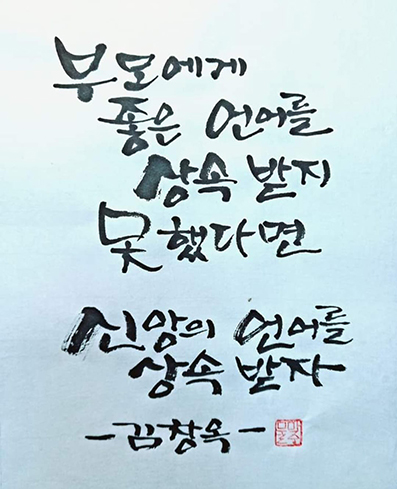 부모에게
좋은 언어를
상속 받지
못했다면
신앙의 언어를
상속 받자
-김창옥-